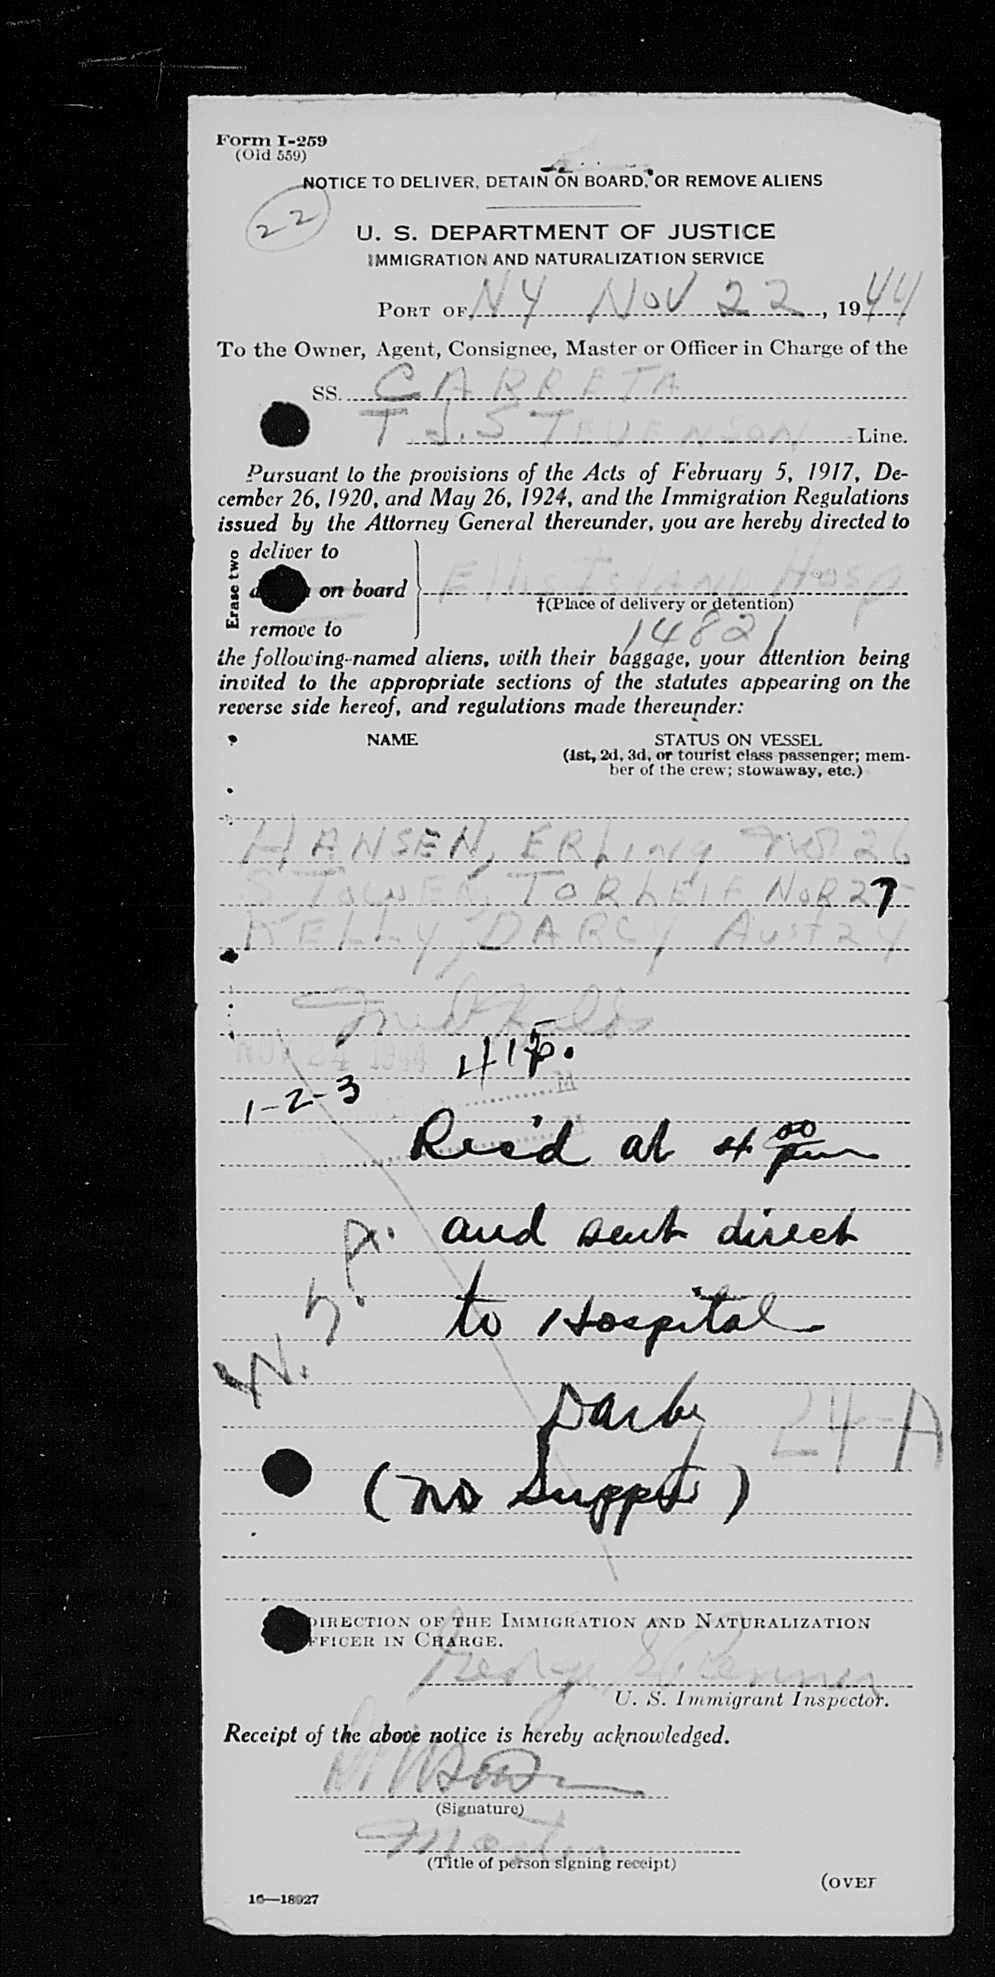 Form I-259
(Old 559)
NOTICE TO DELIVER, DETAIN ON BOARD, OR REMOVE ALIENS
22
U. S. DEPARTMENT OF JUSTICE
IMMIGRATION AND NATURALIZATION SERVICE
PORT OF NY NOV 22, 1944
To the Owner, Agent, Consignee, Master or Officer in Charge of the
SS. CARRETA
T J. STEVENSON Line.
Pursuant to the provisions of the Acts of February 5, 1917, De-
cember 26, 1920, and May 26, 1924, and the Immigration Regulations
issued by the Attorney General thereunder, you are hereby directed to
Erase two
deliver to
on board Ellis ISLAND HOSP
†(Place of delivery or detention)
remove to 14821
the following-named aliens, with their baggage, your attention being
invited to the appropriate sections of the statutes appearing on the
reverse side hereof, and regulations made thereunder:
NAME STATUS ON VESSEL
(1st, 2d, 3d, or tourist class passenger; mem-
ber of the crew; stowaway, etc.)
HANSEN, ERLING NOR 26
TORLEIF NOR 27
KELLY, DARCY Aust 24
NOV 24 1944
1-2-3
Rec'd at 4 00 pm
and sent direct
to Hospital
Darby
24-A
(no Supper)
DIRECTION OF THE IMMIGRATION AND NATURALIZATION
OFFICER IN CHARGE.
George
U. S. Immigrant Inspector.
Receipt of the above notice is hereby acknowledged.
(Signature)
Master
(Title of person signing receipt)
(OVER
16—18927